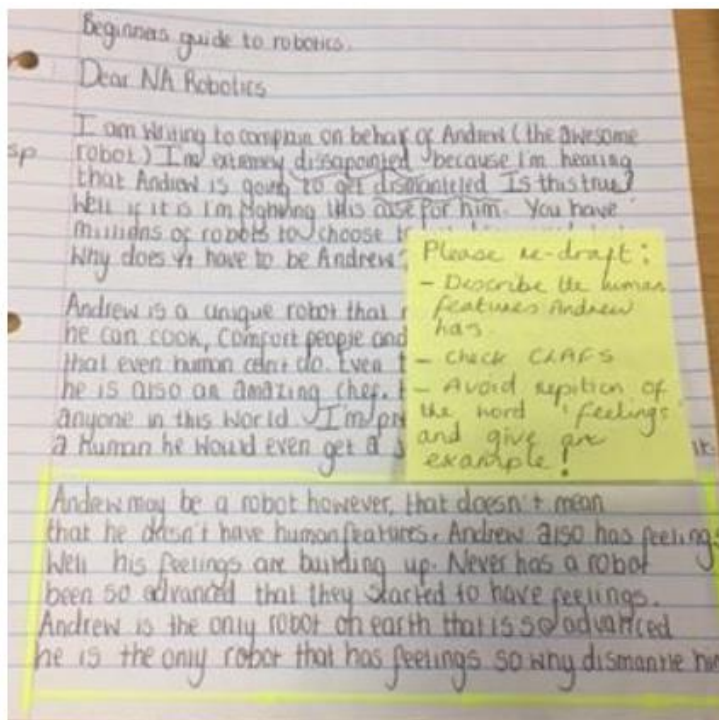 Beginners guide to robotics.
Dear NA Robotics
sp
I am writing to complain on behalf of Andrew (the awesome
robot) I'm extremey dissapointed because I'm hearing
that Andrew is going to get dismanteled Is this true?
Well if it is I'm fighting this case for him. You have
millions of robots to choose
Why does it have to be Andrew?
Andrew is a unique robot that
he can cook, comfort people and
that even human can't do. Even
he is also an amazing chef.
anyone in this world. I'm
a human he would even get a
it.
Please re-draft:
- Describe the human
features Andrew
has.
- Check CLAFS
- Avoid repition of
the word 'feelings'
and give an
example!
Andrew may be a robot however, that doesn't mean
that he doesn't have human features. Andrew also has feelings
Well his feelings are building up. Never has a robot
been so advanced that they started to have feelings.
Andrew is the only robot on earth that is so advanced
he is the only robot that has feelings so why dismantle him